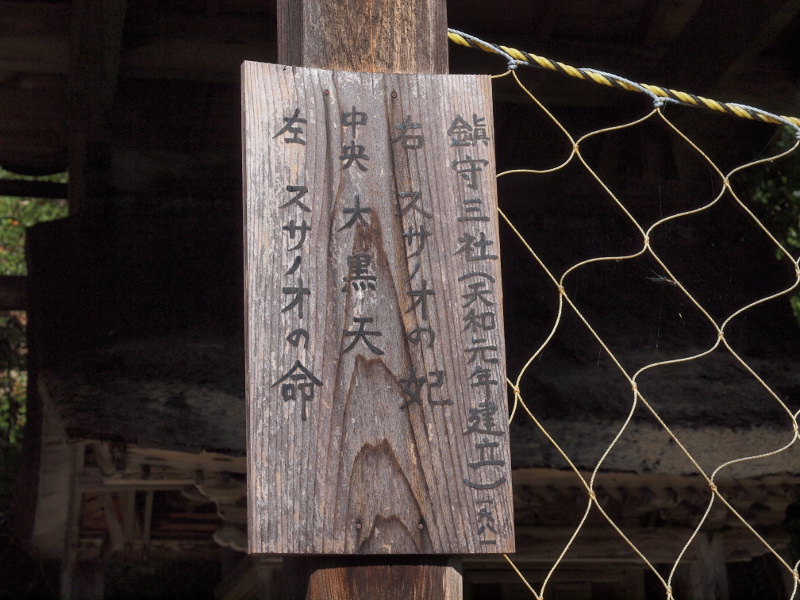 鎮守三社(天和元年建立)一六八一
右 スサノオの妃
中央 大黒天
左 スサノオの命